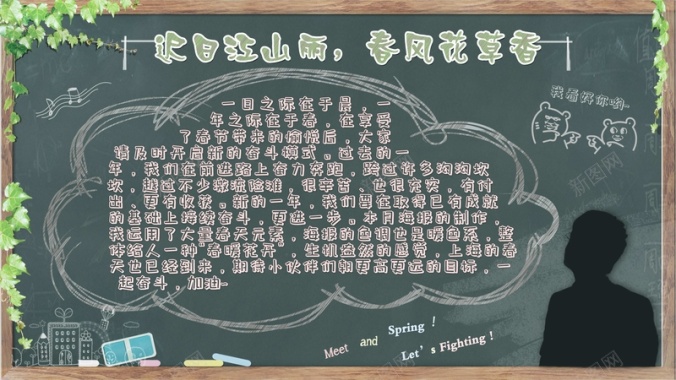 迟日江山丽，春风花草香
我看好你哟~
一日之际在于晨，一
年之际在于春，在享受
了春节带来的愉悦后，大家
请及时开启新的奋斗模式。过去的一
年，我们在前进路上奋力奔跑，跨过许多沟沟坎
坎，越过不少激流险滩，很辛苦、也很充实，有付
出、更有收获。新的一年，我们要在取得已有成就
的基础上接续奋斗，更进一步。本月海报的制作，
我运用了大量春天元素，海报的色调也是暖色系，整
体给人一种“春暖花开”，生机盎然的感觉，上海的春
天也已经到来，期待小伙伴们朝更高更远的目标，一
起奋斗，加油~
Meet and Spring !
Let's Fighting !
新图网